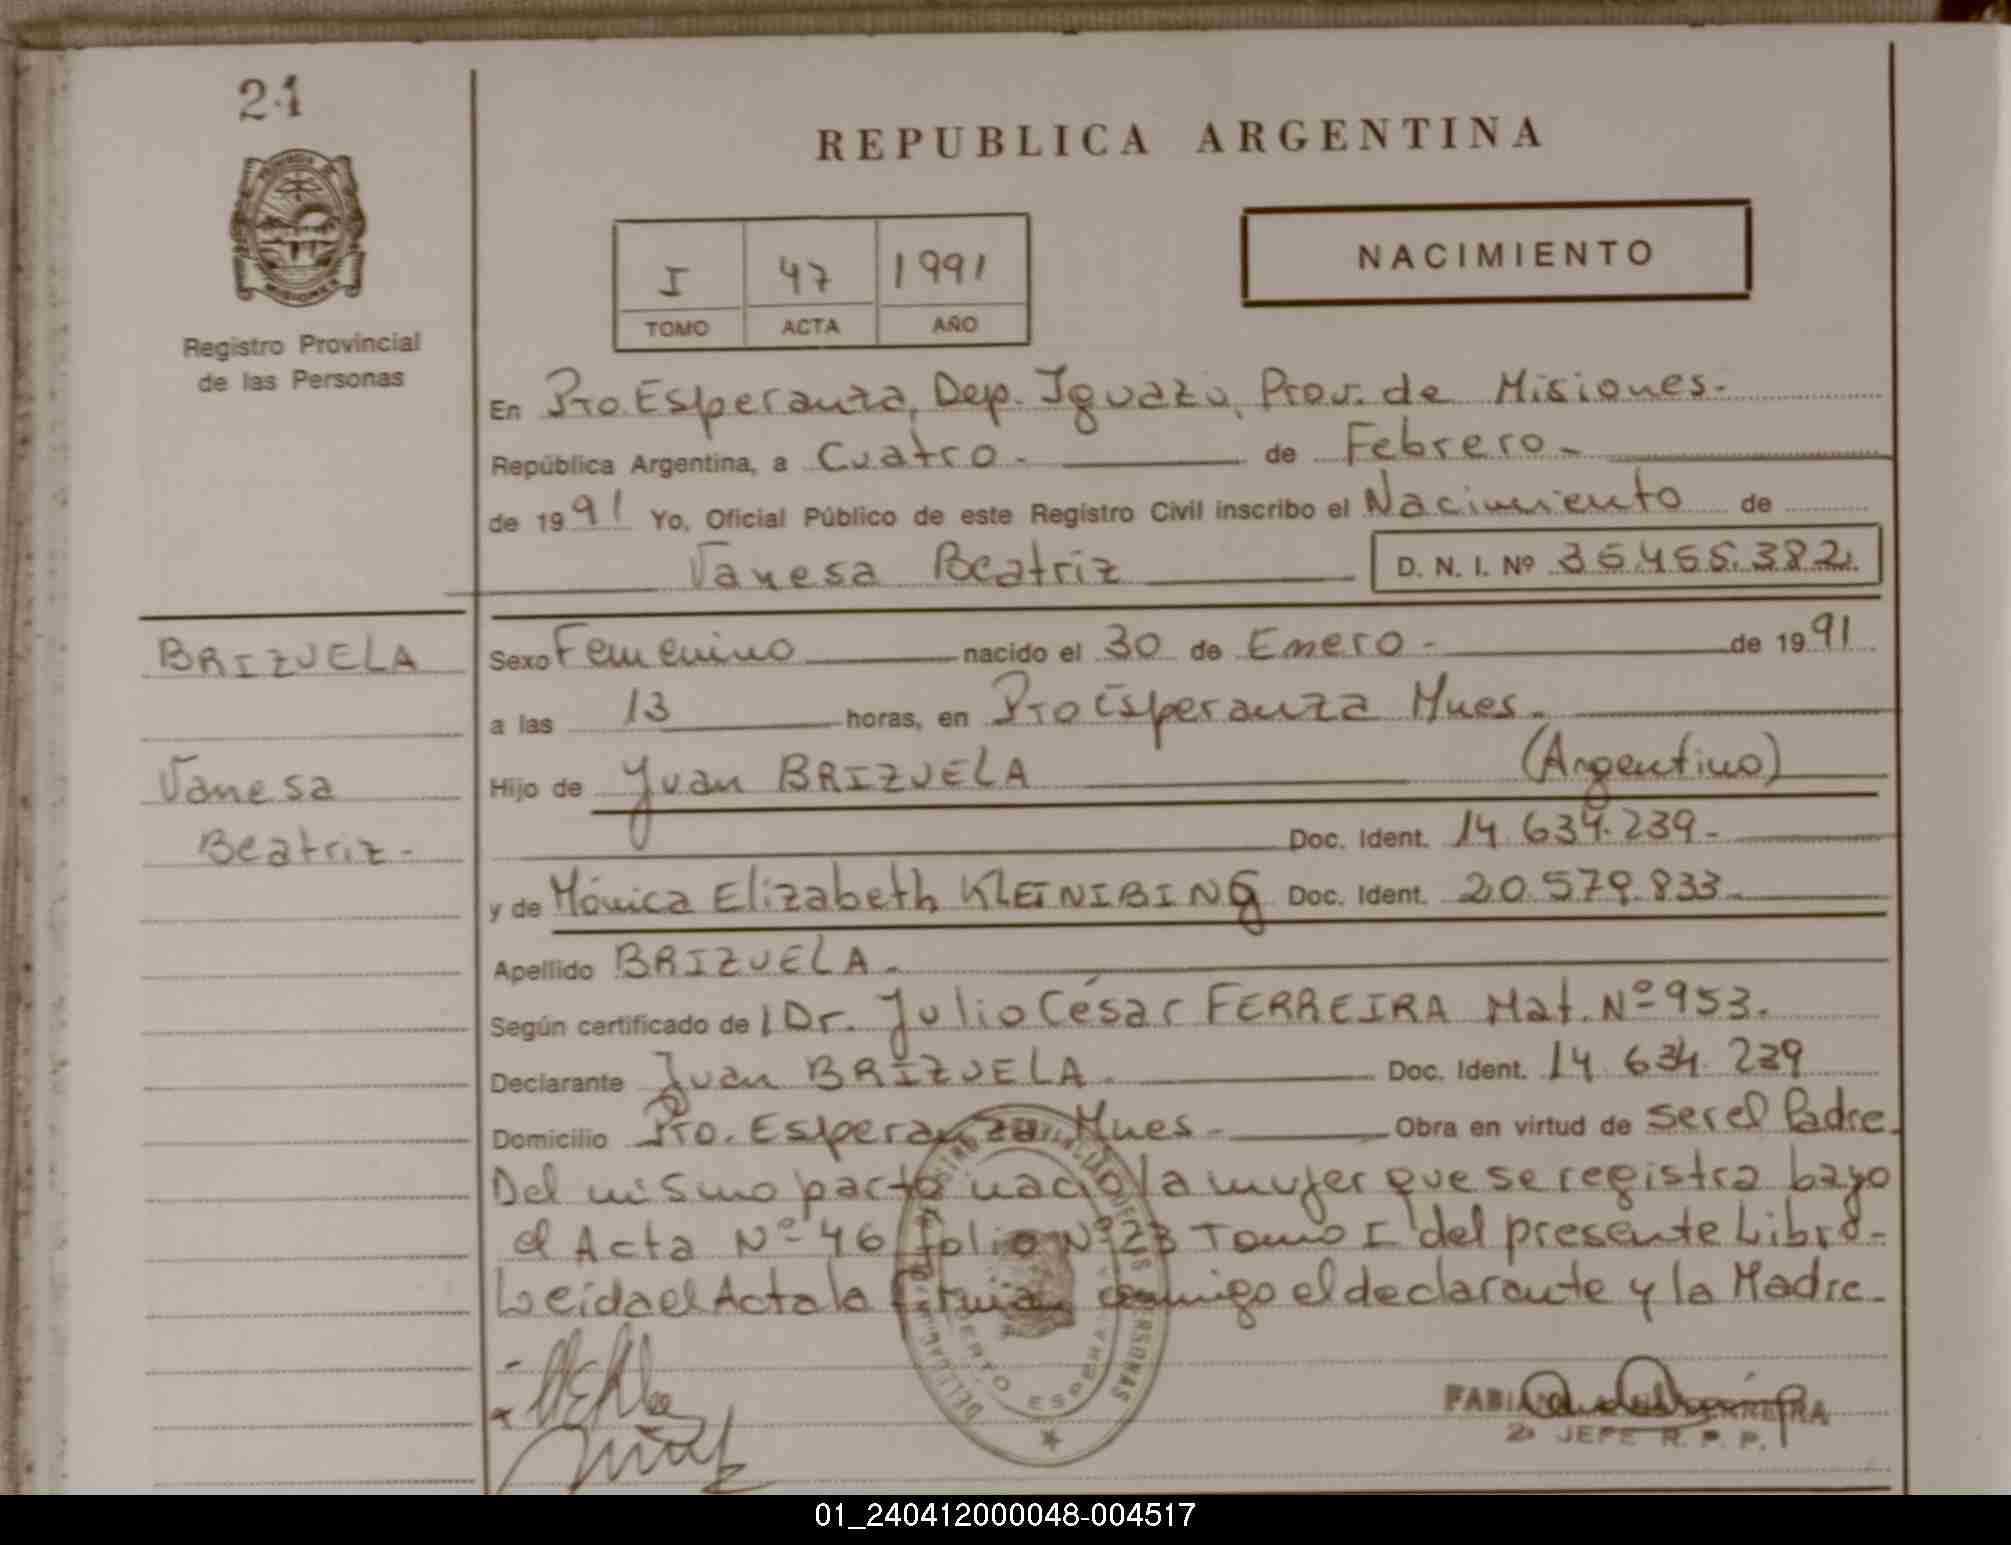 21
Registro Provincial
de las Personas
REPUBLICA ARGENTINA
I 47 1991
TOMO ACTA AÑO
NACIMIENTO
En Pto. Esperanza, Dep. Iguazú, Prov. de Misiones.
República Argentina, a Cuatro. de Febrero.
de 1991 Yo, Oficial Público de este Registro Civil inscribo el Nacimiento de
Vanesa Beatriz D. N. I. Nº 35.455.382.
BRIZUELA
Vanesa
Beatriz.
Sexo Femenino nacido el 30 de Enero. de 1991
a las 13 horas, en Pto Esperanza Mnes.
Hijo de Juan BRIZUELA (Argentino)
Doc. Ident. 14.634.239.
y de Mónica Elizabeth KLEINIBING Doc. Ident. 20.579.833.
Apellido BRIZUELA.
Según certificado de l Dr. Julio César FERREIRA Mat. Nº 953.
Declarante Juan BRIZUELA. Doc. Ident. 14.634.239
Domicilio Pto. Esperanza Mnes. Obra en virtud de ser el Padre.
Del mismo parto nació la mujer que se registra bayo
el Acta Nº 46 folio Nº 23 Tomo I del presente Libro.
Leida el Acta la firman conmigo el declarante y la Madre.
2º JEFE R. P. P.
01_240412000048-004517